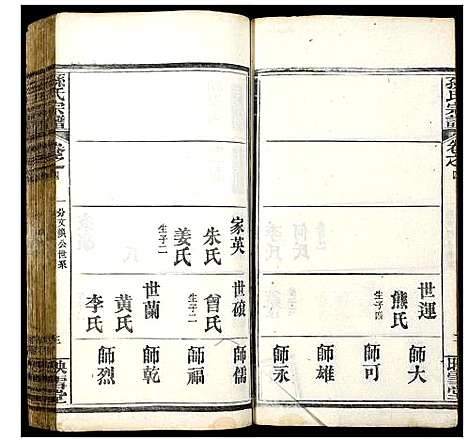 孫氏宗譜
卷之四
世運
熊氏
生子四
師大
師可
師雄
師永
家英
朱氏
姜氏
生子二
世碩
曾氏
生子二
世蘭
黃氏
李氏
師儒
師福
師乾
師烈
孫氏宗譜
卷之四
一分文煥公世系
三
映雪堂